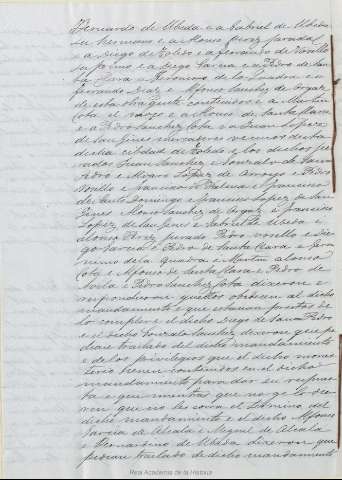 Bernardo de Ubeda e a Gabriel de Ubeda
su hermano e a Alonso Perez jurados
e a Diego de Toledo e a Fernando de Novalla
su primo e a Diego Garcia e a Pedro de San
Fernando Diaz e Alfonso Sanchez de Orgaz
de esta otra parte contenidos e a Martin
e a Pedro Sanchez Cota e a Juan Lopez
de San Gines mercaderes vecinos desta
dicha cibdad de Toledo e los dichos ju
rados Juan Sanchez e Gonzalo de San
Pedro e Alvaro Lopez de Arroyo e Pedro
Novillo e Francisco de Palma e Francisco
de Santo Domingo e Francisco Lopez de San
Gines Alonso Sanchez de Orgaz e Francisco
Lopez de San Gines e Gabriel de Ubeda e
Alonso Perez jurado Pedro Novillo e Die
go Garcia e Pedro de Santa Maria e Gero
nimo de la Quadra e Martin Alonso
Cota e Alfonso de Santa Maria e Pedro de
Avila e Pedro Sanchez Cota dixeron e
respondieron que ellos obedecen al dicho
mandamiento e que estaban prestos de
lo complir e el dicho Diego de San Pedro
e el dicho Gonzalo Sanchez dixeron que pe
dian traslado del dicho mandamiento
e de los privilegios que el dicho mones
terio tienen contenidos en el dicho
mandamiento para dar su repues
ta e que mientras que no ge lo die
ren que no les corra el termino del
dicho mandamiento e el dicho Alfonso
Garcia de Alcala e Miguel de Alcala
e Bernardino de Ubeda dixeron que
pedian traslado de dicho mandamiento
Real Academia de la Historia